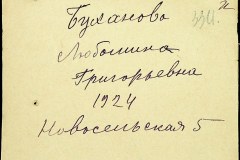 Буханово
Любошиха
Григорьевна
1924
Новосельская 5